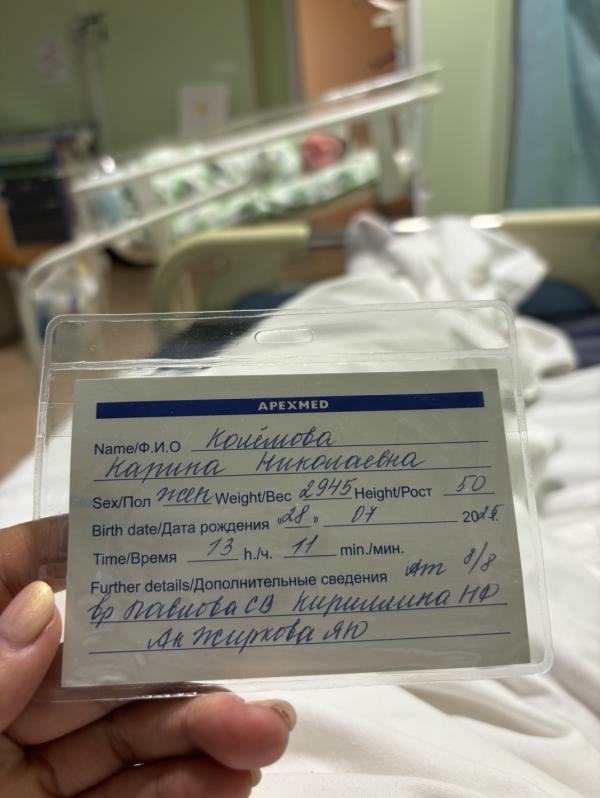 APEXMED
Name/Ф.И.О Колёсова
Карина Николаевна
Sex/Пол жен Weight/Вес 2945 Height/Рост 50
Birth date/Дата рождения «28» 07 20
Time/Время 13 h./ч. 11 min./мин.
Further details/Дополнительные сведения Ап 8/8
вр Павлова СВ Кириллина НФ
Ак Жиркова ЯЮ